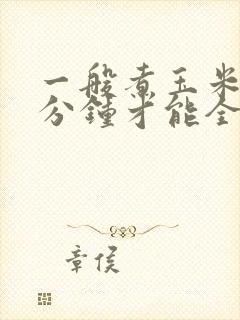 一般煮玉米
分鍾才能全
章侯